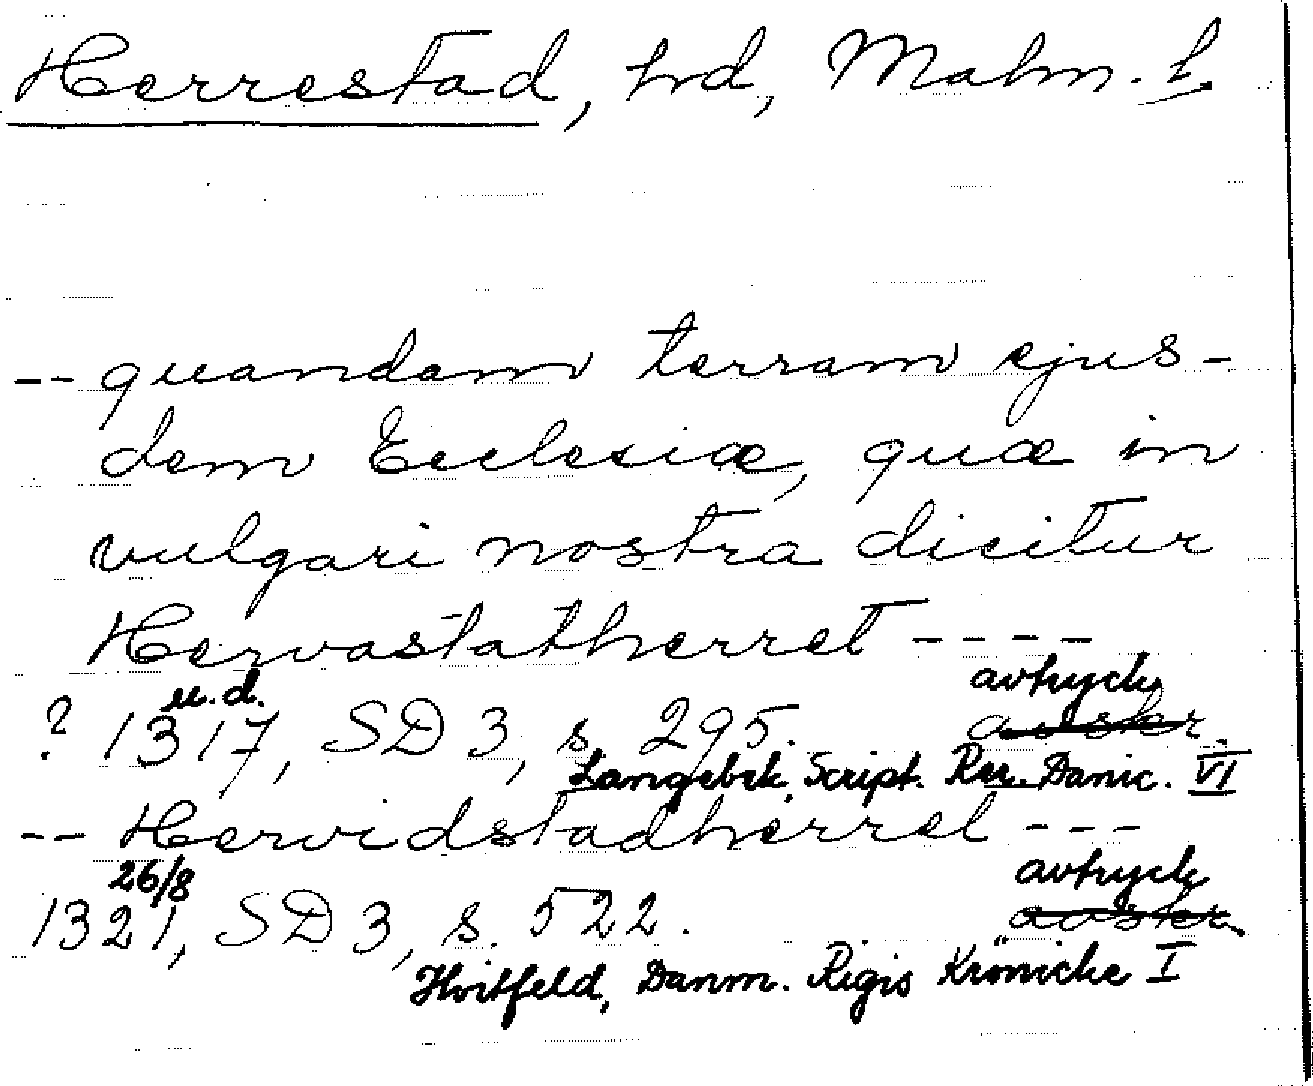 Herrestad, hd, Malm. l.
-- quandam terram ejus-
dem Ecclesiæ, quæ in
vulgari nostra dicitur
Hervastatherret ----
u.d. avtryck
? 1317, SD 3, s. 295. avskr.
Langebek, Script. Rer. Danic. VI
-- Hervidstadherret ---
26/8 avtryck
1321, SD 3, s. 522. avskr.
Hvitfeld, Danm. Rigis Krönicke I